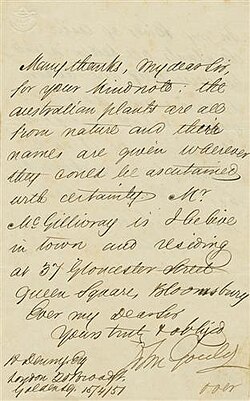 Many thanks, my dear Sir,
for your kind note: the
australian plants are all
from nature and their
names are given wherever
they could be ascertained
with certainty Mr.
McGillivray is I believe
in town and residing
at 37 Gloucester Street
Queen Square, Bloomsbury
Ever my dear Sir
Yours truly & oblijd
John Gould
H Denny Esq
over